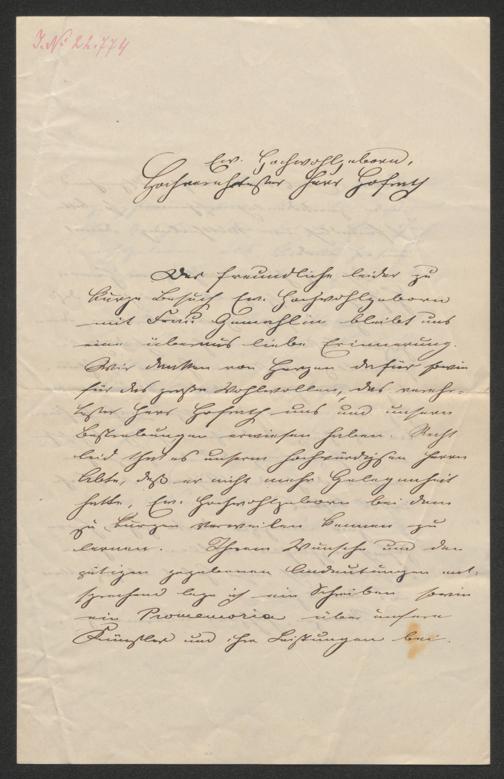 I. N. 22.774
Ew. Hochwohlgeboren,
Hochverehrtester Herr Hofrath
Der freundliche leider zu
kurze Besuch Ew. Hochwohlgeboren
mit Frau Gemahlin bleibt uns
eine überaus liebe Erinnerung.
Wir danken von Herzen dafür sowie
für das große Wohlwollen, das verehr-
tester Herr Hofrath uns und unsern
Bestrebungen erwiesen haben. Recht
leid that es unserm hochwürdigsten Herrn
Abte, daß er nicht mehr Gelegenheit
hatte, Ew. Hochwohlgeboren bei dem
zu kurzen Verweilen kennen zu
lernen. Ihrem Wunsche und den
gütigen gegebenen Andeutungen ent-
sprechend lege ich ein Schreiben sowie
ein Promemoria über unsere
Künstler und ihre Leistungen bei.